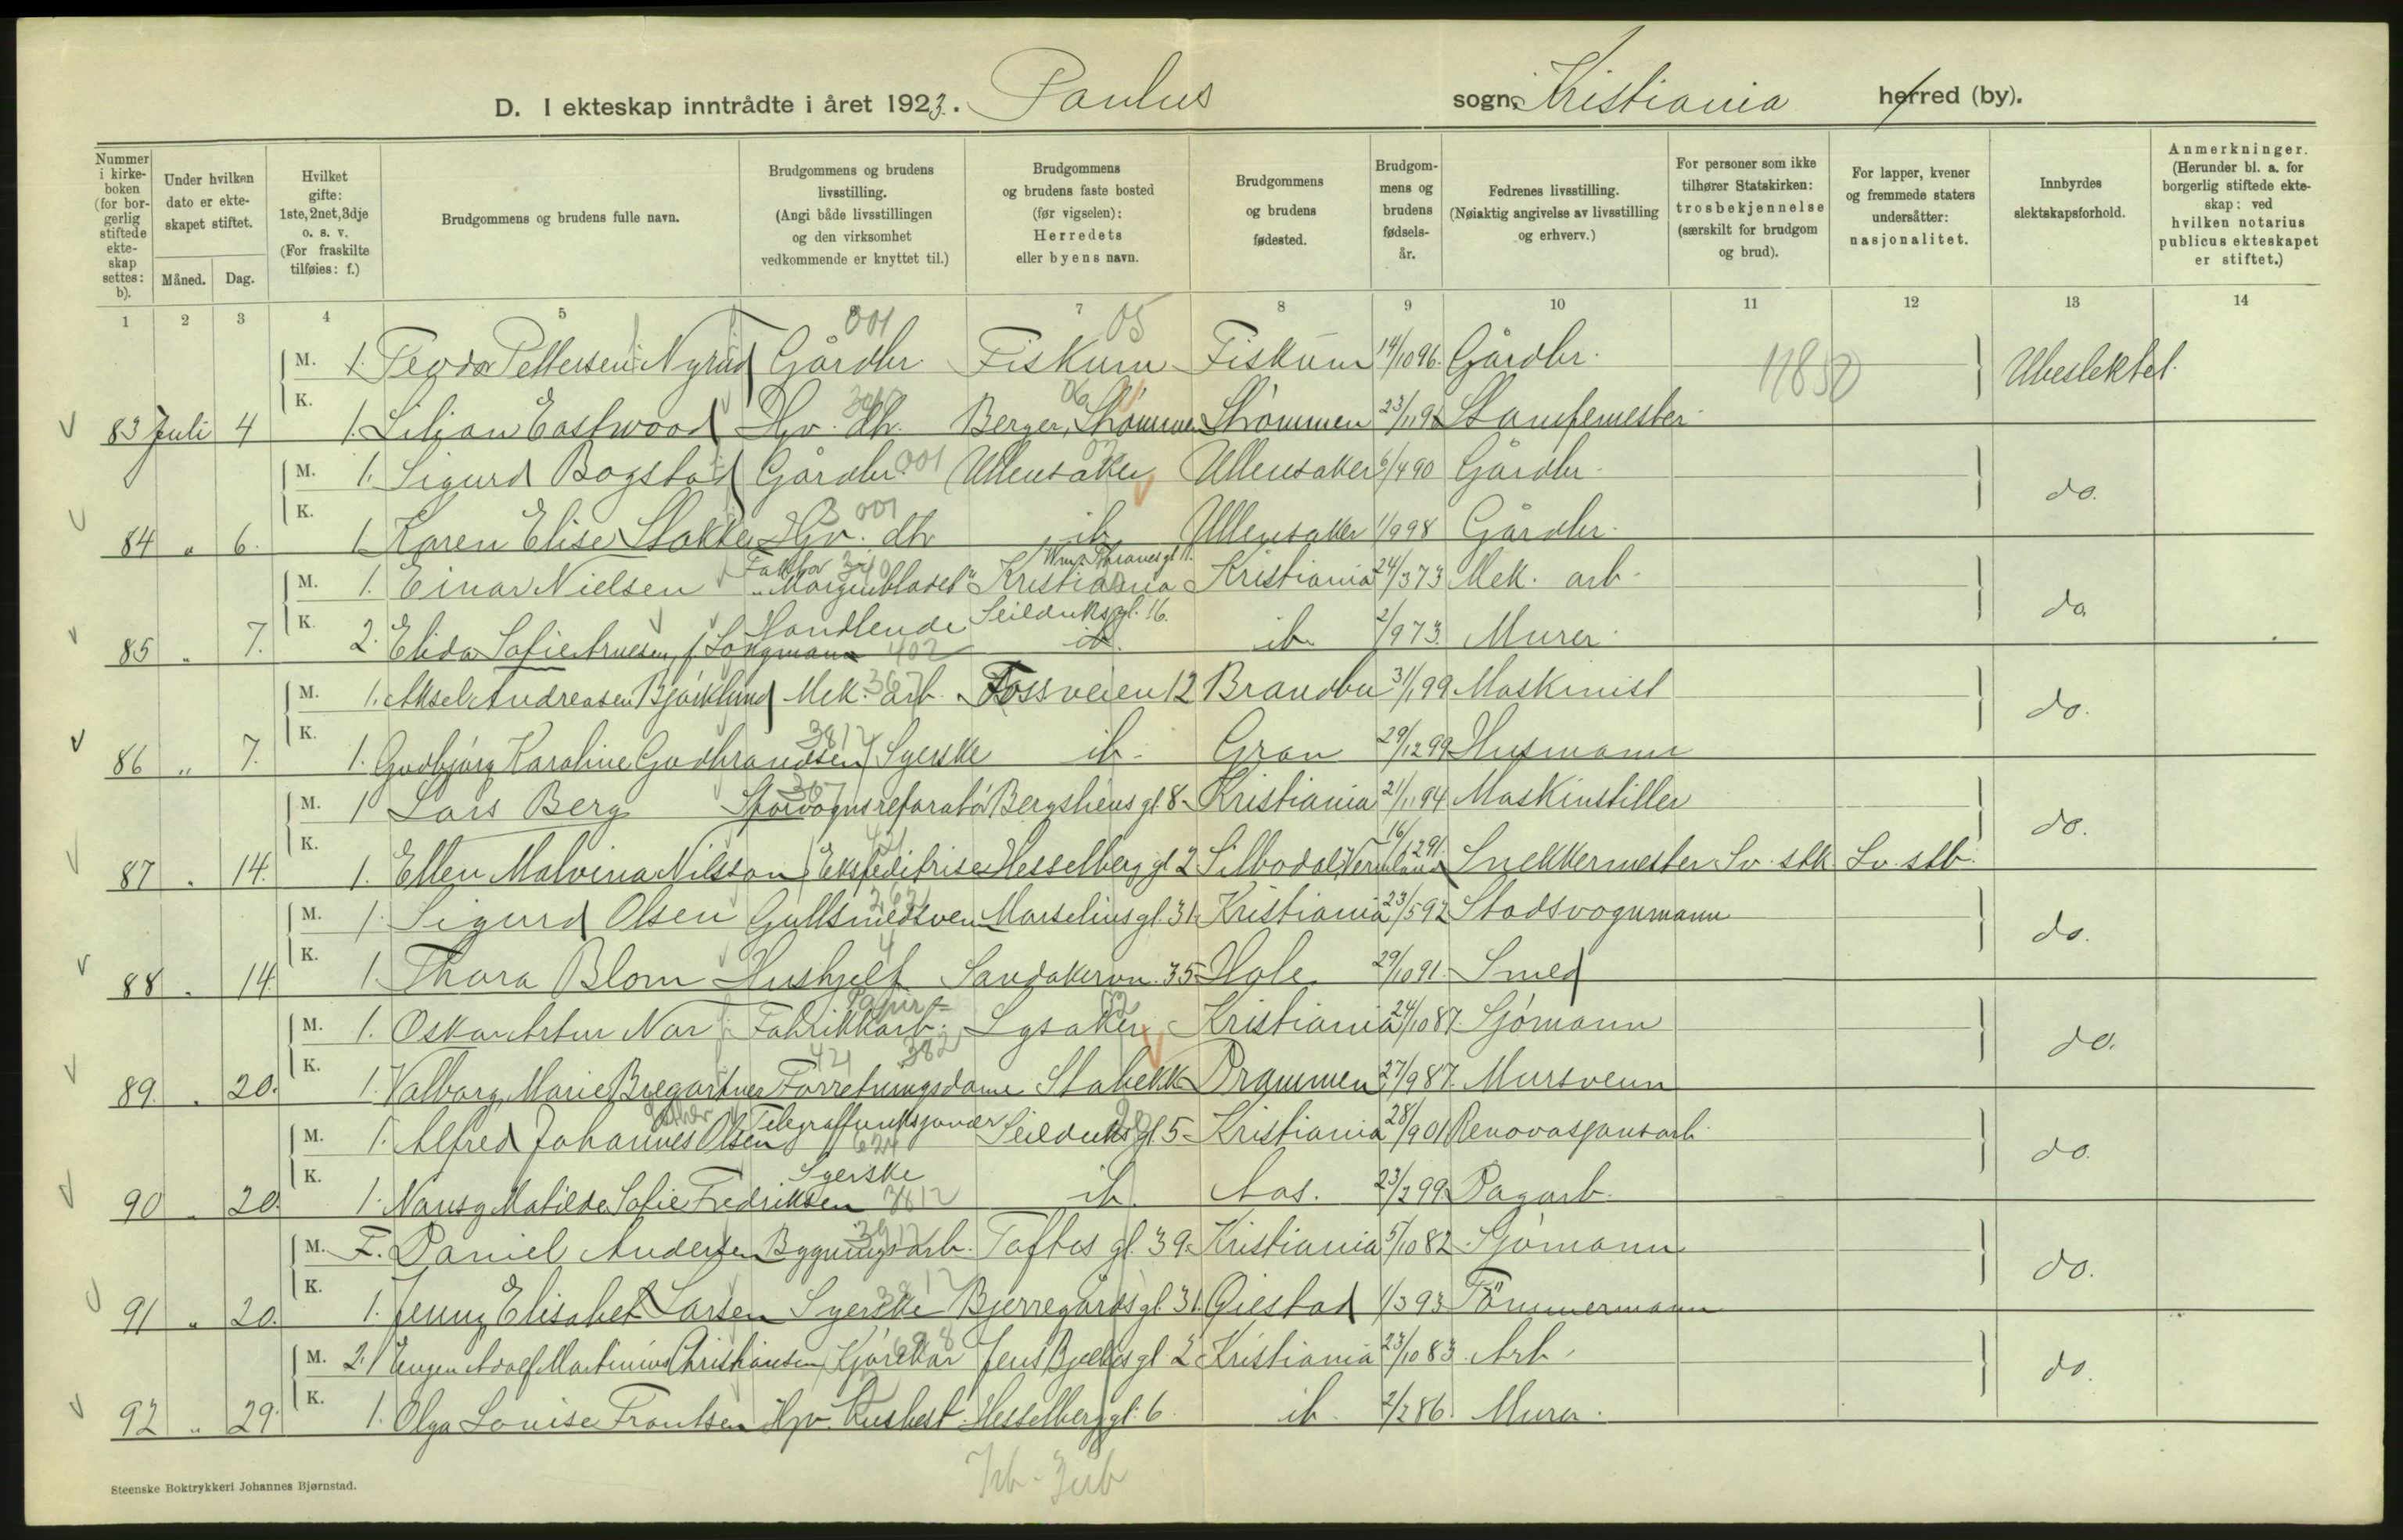 D. I ekteskap inntrådte i året 1923. Paulus sogn, Kristiania herred (by).
Nummer i kirke-boken (for bor-gerlig stiftede ekte-skap settes: b).
Under hvilken dato er ekte-skapet stiftet.
Måned. Dag.
Hvilket gifte: 1ste, 2net, 3dje o. s. v. (For fraskilte tilføies: f.)
Brudgommens og brudens fulle navn.
Brudgommens og brudens livsstilling. (Angi både livsstillingen og den virksomhet vedkommende er knyttet til.)
Brudgommens og brudens faste bosted (før vigselen): Herredets eller byens navn.
Brudgommens og brudens fødested.
Brudgom-mens og brudens fødsels-år.
Fedrenes livsstilling. (Nøiaktig angivelse av livsstilling og erhverv.)
For personer som ikke tilhører Statskirken: trosbekjennelse (særskilt for brudgom og brud).
For lapper, kvener og fremmede staters undersåtter: nasjonalitet.
Innbyrdes slektskapsforhold.
Anmerkninger. (Herunder bl. a. for borgerlig stiftede ekte-skap: ved hvilken notarius publicus ekteskapet er stiftet.)
1 2 3 4 5 7 8 9 10 11 12 13 14
001 05
M. 1. Pettersen Nyrud Gårdbr. Fiskum Fiskum 14/10 96. Gårdbr. 11850 Ubeslektet.
K. 83 Juli 4 1. Lilian Eastwood Hjv. dtr. Berger, Strømmen Strømmen 23/11 9 Stampemester
M. 1. Sigurd Bogstad Gårdbr. 001 Ullensaker Ullensaker 6/4 90 Gårdbr. do.
K. 84 " 6. 1. Karen Elise Stokker Hjv. dtr ib. Ullensaker 1/9 98 Gårdbr.
M. 1. Einar Nielsen Faktor "Morgenbladet" Kristiania Wm. Thranesgt. 11. Kristiania 24/3 73 Mek. arb. do.
K. 85 " 7. 2. Elida Sofie Arnesen, f. Longmann Handlende 402 Seilduksgt. 16. ib. ib. 2/9 73. Murer.
M. 1. Aksel Andreasen Bjørklund Mek. arb. 367 Fossveien 12 Brandbu 31/1 99 Maskinist do.
K. 86 " 7. 1. Gudbjørg Karoline Gudbrandsen Syerske 3812 ib. Gran 29/12 99 Husmann
M. 1 Lars Berg Sporvognsreparatør 367 Bergsliens gt. 8 Kristiania 21/11 94 Maskinstiller do.
K. 87 " 14. 1. Ellen Malvina Nilsson Ekspeditrise Hesselberg gt 2 Silbodal, Vermland 16/12 91. Snekkermester Sv. stk Sv. stb.
M. 1. Sigurd Olsen Gullsmedsvenn Marselius gt. 31 Kristiania 23/5 92 Stadsvognmann do.
K. 88 " 14. 1. Thora Blom Hushjelp 4 Sandakervn. 35 Hole 29/10 91. Smed
M. 1. Oskar Artur Nor Papir= Fabrikkarb. 382 Lysaker Kristiania 24/10 87. Sjømann do.
K. 89. " 20. 1. Valborg Marie Bregartner Forretningsdame 421 Stabekk Drammen 27/9 87. Mursvenn
M. 1. Alfred Johannes Olsen Telegraffunksjonær 624 Seilduksgt. 5 Kristiania 28/9 01 Renovasjonsarb. do.
K. 90 " 20. 1. Nansy Matilde Sofie Fredriksen Syerske 3812 ib. Aas. 23/2 99. Dagarb.
M. F. Daniel Andersen Bygningsarb. Toftes gt. 39. Kristiania 5/10 82. Sjømann do.
K. 91 " 20. 1. Jenny Elisabet Larsen Syerske 3812 Bjerregårdsgt. 31. Øiestad 1/3 93 Tömmermann
M. 2. Eugen Adolf Martinius Christiansen Kjørekar 698 Jens Bjelkes gt. 2 Kristiania 23/10 83. Arb. do.
K. 92 " 29. 1. Olga Louise Frantsen Hjv. husbest. Hesselberg gt. 6. ib. 2/2 86. Murer.
Steenske Boktrykkeri Johannes Bjørnstad.